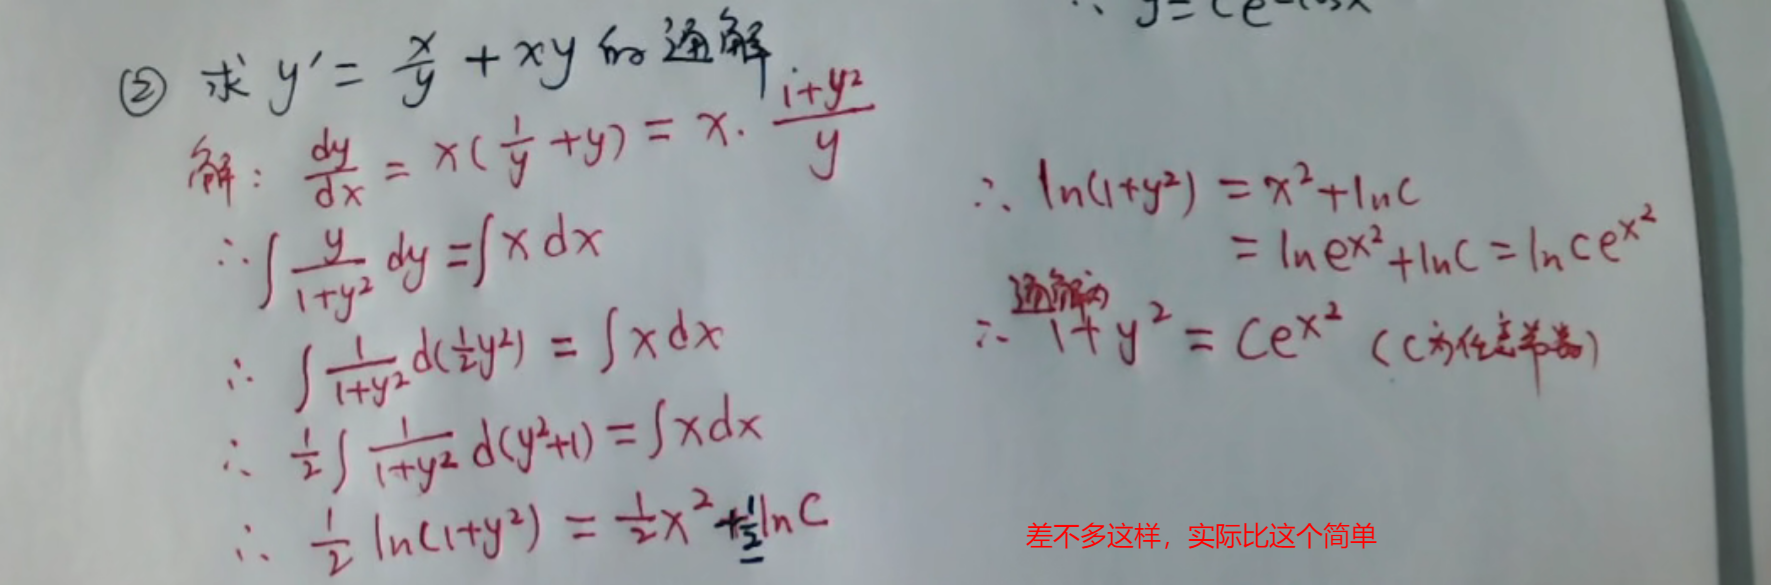 ∴ y = Ce^-cosx
② 求 y′ = x/y + xy 的通解
解: dy/dx = x(1/y + y) = x · (1+y²)/y
∴ ∫ y/(1+y²) dy = ∫ x dx
∴ ∫ 1/(1+y²) d(½y²) = ∫ x dx
∴ ½ ∫ 1/(1+y²) d(y²+1) = ∫ x dx
∴ ½ ln(1+y²) = ½x² + ½ lnC
∴ ln(1+y²) = x² + lnC
= ln e^x² + lnC = ln Ce^x²
通解为
∴ 1+y² = Ce^x² (C为任意常数)
差不多这样，实际比这个简单